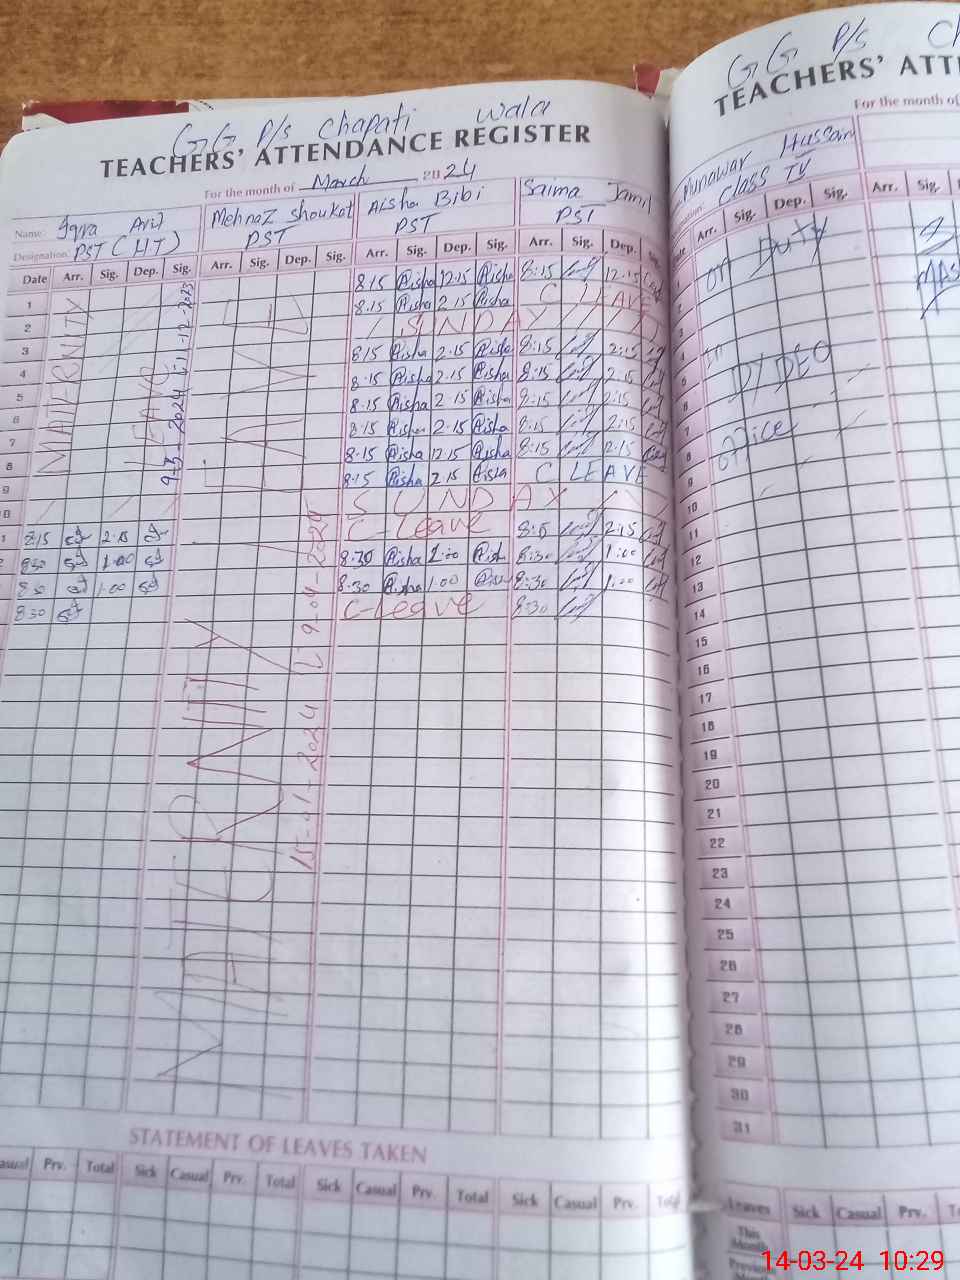 GG P/s Chapati Wala
TEACHERS' ATTENDANCE REGISTER
For the month of March 2024
Name: Iqra Arif Mehnaz Shoukat Aisha Bibi Saima Jamil
Designation: PST (HT) PST PST PST
Date Arr. Sig. Dep. Sig. Arr. Sig. Dep. Sig. Arr. Sig. Dep. Sig. Arr. Sig. Dep. Sig.
MATERNITY LEAVE
9-3-2024 11-12-2023
MATERNITY LEAVE
15-01-2024 19-04-2024
1 8:15 Aisha 12:15 Aisha 8:15 12:15
2 8:15 Aisha 2:15 Aisha C LEAVE
3 SUNDAY
4 8:15 Aisha 2:15 Aisha 8:15 2:15
5 8:15 Aisha 2:15 Aisha 8:15 2:15
6 8:15 Aisha 2:15 Aisha 8:15 2:15
7 8:15 Aisha 2:15 Aisha 8:15 2:15
8 8:15 Aisha 12:15 Aisha 8:15 12:15
9 8:15 Aisha 2:15 Aisha C LEAVE
10 SUNDAY
8:15 2:15 C-Leave 8:15 2:15
8:30 1:00 8:30 Aisha 1:00 Aisha 8:30 1:00
8:30 1:00 8:30 Aisha 1:00 8:30 1:00
8:30 C-Leave 8:30
STATEMENT OF LEAVES TAKEN
Casual Prv. Total Sick Casual Prv. Total Sick Casual Prv. Total Sick Casual Prv. Total
GG P/s Ch
TEACHERS' ATT
For the month of
Munawar Hussain
Class IV
Arr. Sig. Dep. Sig. Arr. Sig.
On Duty
in
DY DEO
office
8
9
10
11
12
13
14
15
16
17
18
19
20
21
22
23
24
25
26
27
28
29
30
31
Leaves Sick Casual Prv.
This Month
Previous
14-03-24 10:29